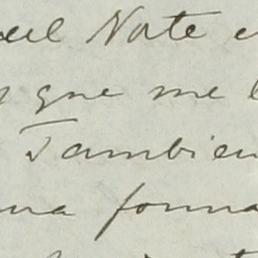 del Norte e
que me l
Tambien
una forma